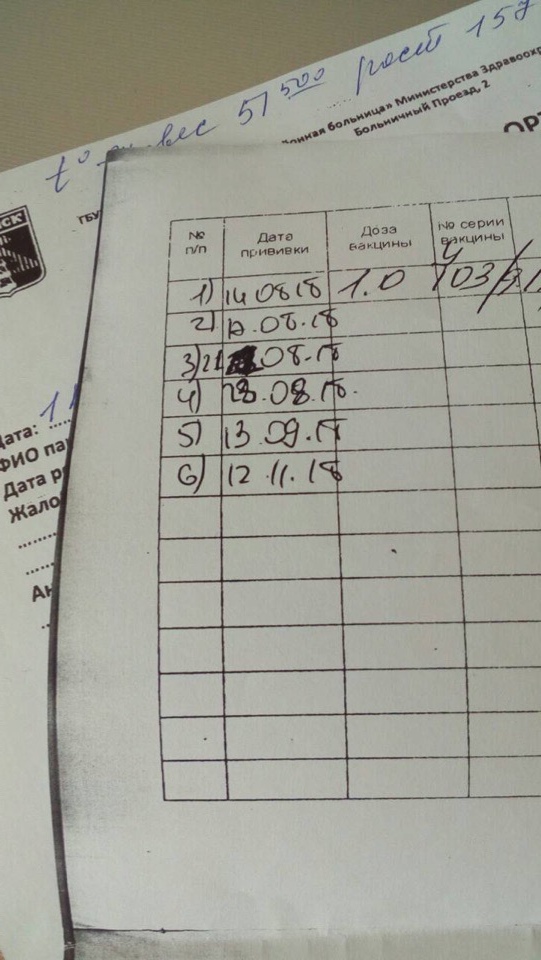 вес 51 500 рост 157
онная больница» Министерства Здравоохр
Больничный Проезд, 2
ГБУ
ОРТ
СК
Дата:
ФИО па
Дата р
Жало
Ан
№ п/п
Дата прививки
Доза вакцины
№ серии вакцины
1) 14 08 18 1.0
2) 17.08.18
3) 21 08.18
4) 28.08.18.
5) 13.09.18
6) 12.11.18